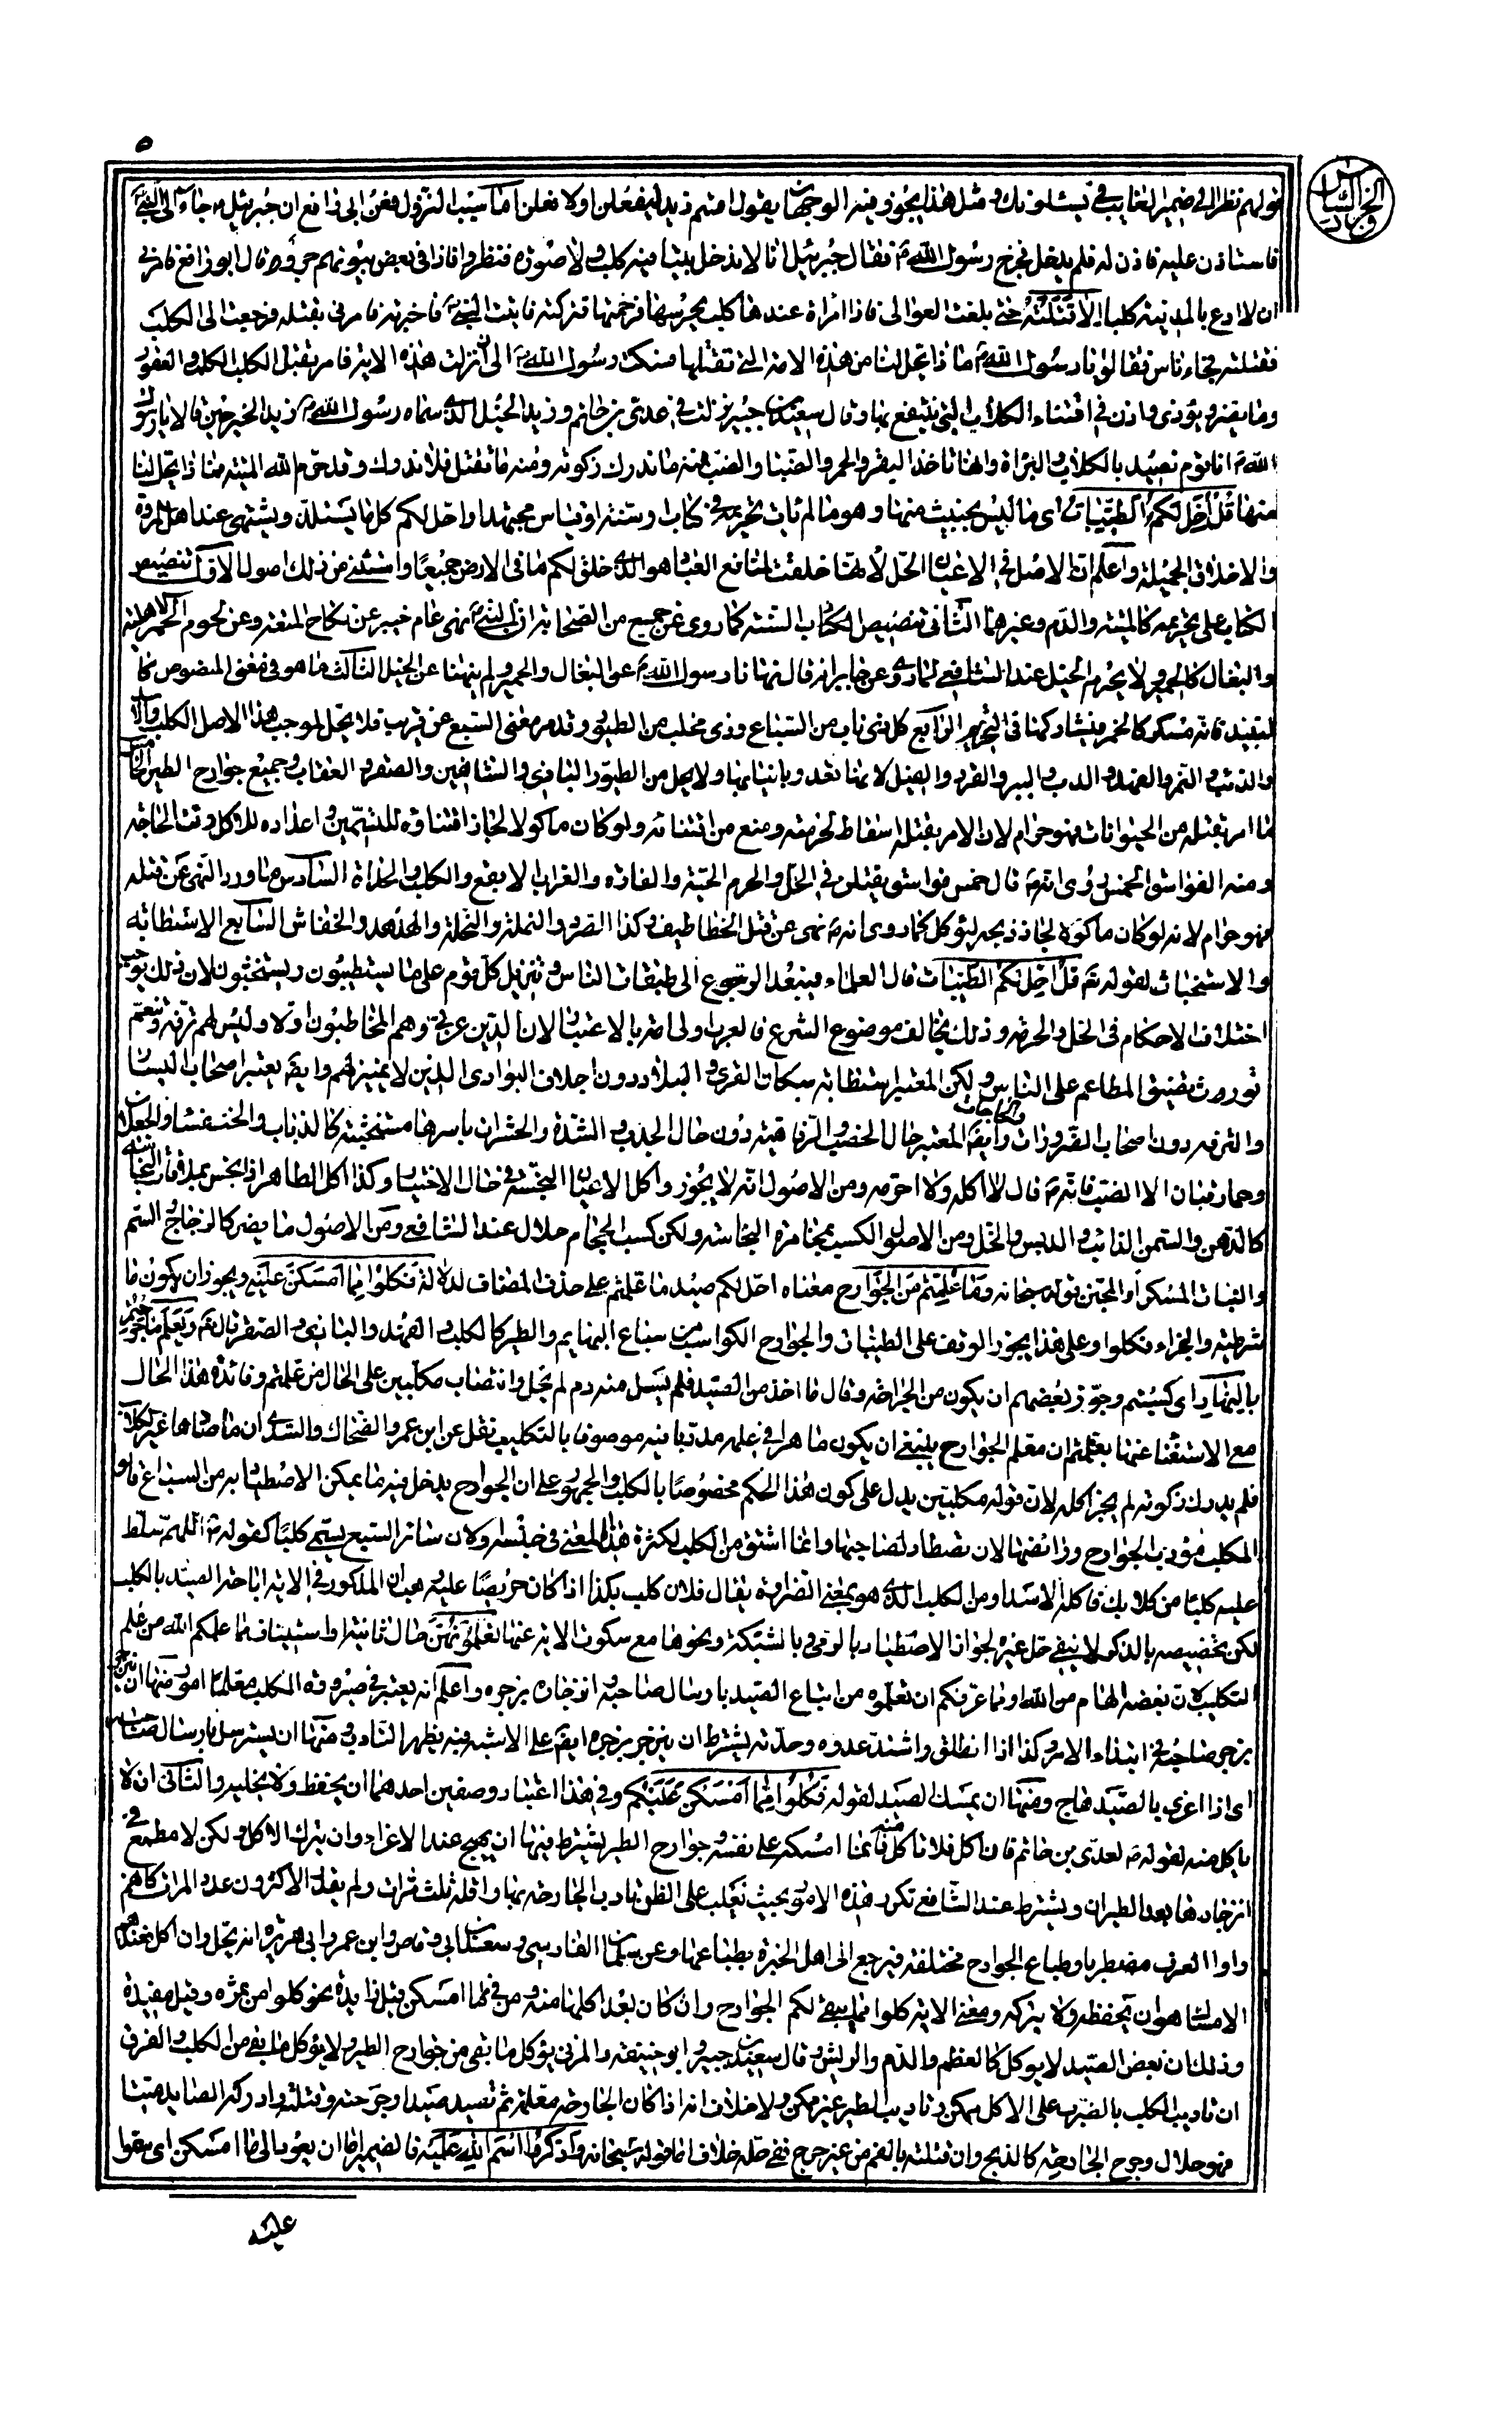 ٥
الجزء السادس
قولهم نظرا الى ضمير الغايب في يسئلونك ومثل هذا يجوز فيه الوجهان يقول اقسم زيد ليفعلن او لافعلن اما سبب النزول فعن ابى رافع ان جبرئيل جاء الى النبى
فاستاذن عليه فاذن له فلم يدخل فخرج رسول الله فقال جبرئيل انا لا ندخل بيتا فيه كلب ولا صورة فنظروا فاذا في بعض بيوتهم جرو قال ابو رافع فامرنى
ان لا ادع بالمدينة كلبا الا قتلته حتى بلغت العوالى فاذا امراة عندها كلب يحرسها فرحمتها فتركته فاتيت النبى فاخبرته فامرنى بقتله فرجعت الى الكلب
فقتلته فجاء ناس فقالوا يا رسول الله ما ذا يحل لنا من هذه الامة التى تقتلها فسكت رسول الله الى ان نزلت هذه الاية فامر بقتل الكلب الكلب والعقور
وما يضر ويؤذى واذن في اقتناء الكلاب التى ينتفع بها وقال سعيد بن جبير نزلت في عدى بن حاتم وزيد الخيل الذى سماه رسول الله زيد الخير حين قالا يا رسول
الله انا قوم نصيد بالكلاب والبزاة وانها تاخذ البقر والحمر والظباء والضب فمنه ما ندرك ذكوته ومنه ما تقتل فلا ندرك وقد حرم الله الميتة فماذا يحل لنا
منها قل احل لكم الطيبات اى ما ليس بخبيث منها وهو ما لم يات تحريمه في كتاب او سنة او قياس مجتهد او احل لكم كل ما يستلذ ويشتهى عند اهل المروة
والاخلاق الجميلة واعلم ان الاصل في الاعيان الحل لانها خلقت لمنافع العباد هو الذى خلق لكم ما في الارض جميعا واستثنى من ذلك اصول الاول تنصيص
الكتاب على تحريمه كالميتة والدم وغيرهما الثانى تنصيص السنة كما روى عن جمع من الصحابة ان النبى نهى عام خيبر عن نكاح المتعة وعن لحوم الحمر الاهلية
والبغال كالحمير ولا يحرم الخيل عند الشافعى لما روى عن جابر انه قال نهانا رسول الله عن البغال والحمير ولم ينهنا عن الخيل الثالث ما هو في معنى المنصوص كا
لنبيذ فانه مسكر كالخمر فيشاركها في التحريم الرابع كل ذى ناب من السباع وذى مخلب من الطيور وقد مر معنى السبع عن قريب فلا يحل لموجب هذا الاصل الكلب والاسد
والذئب والنمر والفهد والدب والببر والقرد والفيل لانها تعدو بانيابها ولا يحل من الطيور البازى والشاهين والصقر والعقاب وجميع جوارح الطير الخامس
ما امر بقتله من الحيوانات فهو حرام لان الامر بقتله اسقاط لحرمته ومنع من اقتنائه ولو كان ماكولا لجاز اقتناؤه للتسمين واعداده للاكل وقت الحاجة
ومنه الفواسق الخمس روى انه قال خمس فواسق يقتلن في الحل والحرم الحية والفارة والغراب الابقع والكلب والحداة السادس ما ورد النهى عن قتله
فهو حرام لانه لو كان ماكولا لجاز ذبحه ليؤكل كما روى انه نهى عن قتل الخطاطيف وكذا الصرد والنملة والنحلة والهدهد والخفاش السابع الاستطابة
والاستخباث لقوله تع قل احل لكم الطيبات قال العلماء فيبعد الرجوع الى طبقات الناس وتنزيل كل قوم على ما يستطيبون ويستخبثون لان ذلك يوجب
اختلاف الاحكام في الحل والحرمة وذلك يخالف موضوع الشرع فالعرب اولى امة بالاعتبار لان الدين عربى وهم المخاطبون اولا وليس لهم ترفه وتنعم
يورث تضيق المطاعم على الناس ولكن المعتبر استطابة سكان القرى والبلاد دون اجلاف البوادى الذين لا تمييز لهم وايضا يعتبر اصحاب اليسار
والترفه دون اصحاب الضرورات والحاجات وايضا المعتبر حال الخصب والرفاهية دون حال الجدب والشدة والحشرات باسرها مستخبثة كالذباب والخنفساء والجعلان
وحمار قبان الا الضب فانه قال لا اكله ولا احرمه ومن الاصول انه لا يجوز اكل الاعيان النجسة في حال الاختيار وكذا اكل الطاهر اذا نجس بملاقات النجاسة
كالدهن والسمن الذائب والدبس والخل ومن الاصول الكسب بمخامرة النجاسة ولكن كسب الحجام حلال عند الشافعى ومن الاصول ما يضر كالزجاج والسم
والنبات المسكر او المجنن قوله سبحانه وما علمتم من الجوارح معناه احل لكم صيد ما علمتم على حذف المضاف لدلالة فكلوا مما امسكن عليه ويجوز ان يكون ما
شرطية والجزاء فكلوا وعلى هذا يجوز الوقف على الطيبات والجوارح الكواسب من سباع البهايم والطير كالكلب والفهد والبازى والصقر قال تع ويعلم ما جرحتم
بالنهار اى كسبتم وجوز بعضهم ان يكون من الجراحة وقال ما اخذ من الصيد فلم يسل منه دم لم يحل وانتصاب مكلبين على الحال من علمتم وفائدة هذا الحال
مع الاستغناء عنها بعلمتم ان معلم الجوارح ينبغى ان يكون ماهرا في علمه مدربا فيه موصوفا بالتكليب نقل عن ابن عمر والضحاك والسدى ان ما صادها غير الكلاب
فلم يدرك ذكوته لم يجز اكله لان قوله مكلبين يدل على كون هذا الحكم مخصوصا بالكلب والجمهور على ان الجوارح يدخل فيه ما يمكن الاصطياد به من السباع قالوا
المكلب مؤدب الجوارح ورائضها لان تصطاد لصاحبها وانما اشتق من الكلب لكثرة هذا المعنى في جنسه ولان سائر السبع يسمى كلبا كقوله اللهم سلط
عليه كلبا من كلابك فاكله الاسد او من الكلب الذى هو بمعنى الضراوة يقال فلان كلب بكذا اذا كان حريصا عليه وهب ان المذكور في الاية اباحة الصيد بالكلب
لكن تخصيصه بالذكر لا ينفى حل غيره لجواز الاصطياد بالرمى وبالشبكة ونحوها مع سكوت الاية عنها تعلمونهن حال ثانية او استيناف مما علمكم الله من علم
التكليب لان بعضه الهام من الله او مما عرفكم ان تعلموه من اتباع الصيد بارسال صاحبه وانزجاره بزجره واعلم انه يعتبر في صيرورة الكلب معلما امور منها ان ينزجر
بزجر صاحبه في ابتداء الامر وكذا اذا انطلق واشتد عدوه وحدته يشترط ان ينزجر بزجره ايضا على الاشبه فبه يظهر التادب ومنها ان يسترسل بارسال صاحبه
اى اذا اغرى بالصيد هاج ومنها ان يمسك الصيد لقوله فكلوا مما امسكن عليكم وفى هذا اعتبار وصفين احدهما ان يحفظ ولا يخليه والثانى ان لا
ياكل منه لقوله لعدى بن حاتم فان اكل فلا تاكل منه فانما امسكه على نفسه وجوارح الطير يشترط فيها ان يهيج عند الاغراء وان يترك الاكل ولكن لا مطمع في
انزجارها بعد الطيران ويشترط عند الشافعى تكرر هذه الامور بحيث يغلب على الظن تادب الجارحة بها واقله ثلث مرات ولم يقدر الاكثرون عدد المرات كانهم
راوا العرف مضطربا وطباع الجوارح مختلفة فيرجع الى اهل الخبرة بطباعها وعن سلمان الفارسى وسعد بن ابى وقاص وابن عمر وابى هريرة انه يحل وان اكل فعندهم
الامساك هو ان يحفظه ولا يتركه ومعنى الاية كلوا مما يبقى لكم الجوارح وان كان بعد اكلها منه ومن في مما امسكن قيل زايدة نحو كلوا من ثمره وقيل مفيدة
وذلك ان بعض الصيد لا يوكل كالعظم والدم والريش وقال سعيد بن جبير وابو حنيفة والمزنى يؤكل ما بقى من جوارح الطير ولا يؤكل ما بقى من الكلب والفرق
ان تاديب الكلب بالضرب على الاكل ممكن وتاديب الطير غير ممكن ولا خلاف انه اذا كان الجارحة معلمة ثم تصيد صيدا وجرحته وقتلته وادركه الصايد ميتا
فهو حلال وجرح الجارحة كالذبح وان قتلته بالغم من غير جرح ففى حله خلاف اما قوله سبحانه واذكروا اسم الله عليه فالضمير اما ان يعود الى ما امسكن اى سموا
عليه